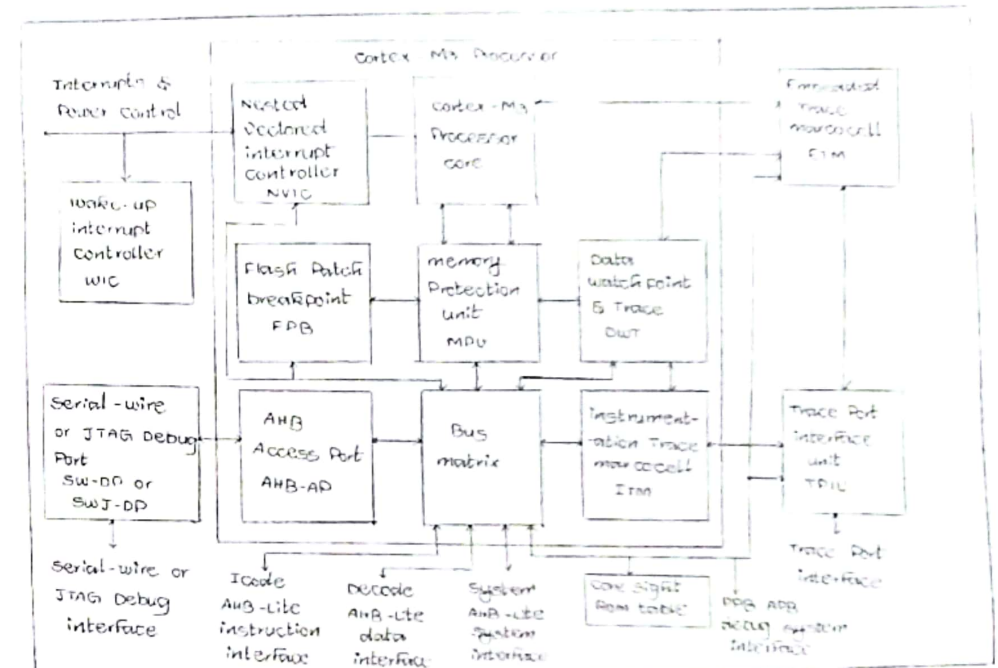 Cortex M3 Processor
Interrupts &
Power control
Nested
Vectored
interrupt
controller
NVIC
Cortex-M3
Processor
core
Embedded
Trace
marcocell
ETM
Wake-up
interrupt
controller
WIC
Flash Patch
breakpoint
FPB
memory
Protection
unit
MPU
Data
watchpoint
& Trace
DWT
Serial-wire
or JTAG Debug
Port
SW-DP or
SWJ-DP
AHB
Access Port
AHB-AP
Bus
matrix
instrument-
ation Trace
marcocell
ITM
Trace Port
interface
unit
TPIU
Serial-wire or
JTAG Debug
interface
Icode
AHB-Lite
instruction
interface
Decode
AHB-Lte
data
interface
System
AHB-Lte
System
interface
Core Sight
Rom table
PPB APB
debug system
interface
Trace Port
interface